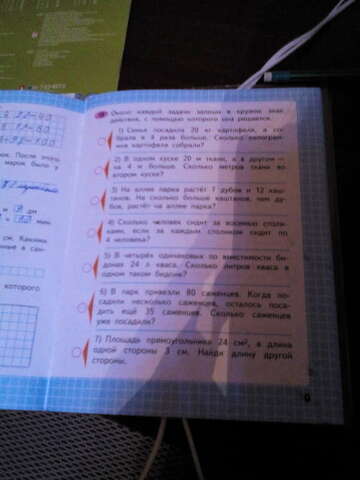 Около каждой задачи запиши в кружок знак
действия, с помощью которого она решается.
1) Семья посадила 20 кг картофеля, а со-
брала в 4 раза больше. Сколько килограм-
мов картофеля собрали?
2) В одном куске 20 м ткани, а в другом —
на 4 м больше. Сколько метров ткани во
втором куске?
3) На аллее парка растёт 7 дубов и 12 каш-
танов. На сколько больше каштанов, чем ду-
бов, растёт на аллее парка?
4) Сколько человек сидит за восемью столи-
ками, если за каждым столиком сидят по
4 человека?
5) В четырёх одинаковых по вместимости би-
донах 24 л кваса. Сколько литров кваса в
одном таком бидоне?
6) В парк привезли 80 саженцев. Когда по-
садили несколько саженцев, осталось поса-
дить ещё 35 саженцев. Сколько саженцев
уже посадили?
7) Площадь прямоугольника 24 см², а длина
одной стороны 3 см. Найди длину другой
стороны.
После этого
марок было у
дм
мин
см. Какова
которого